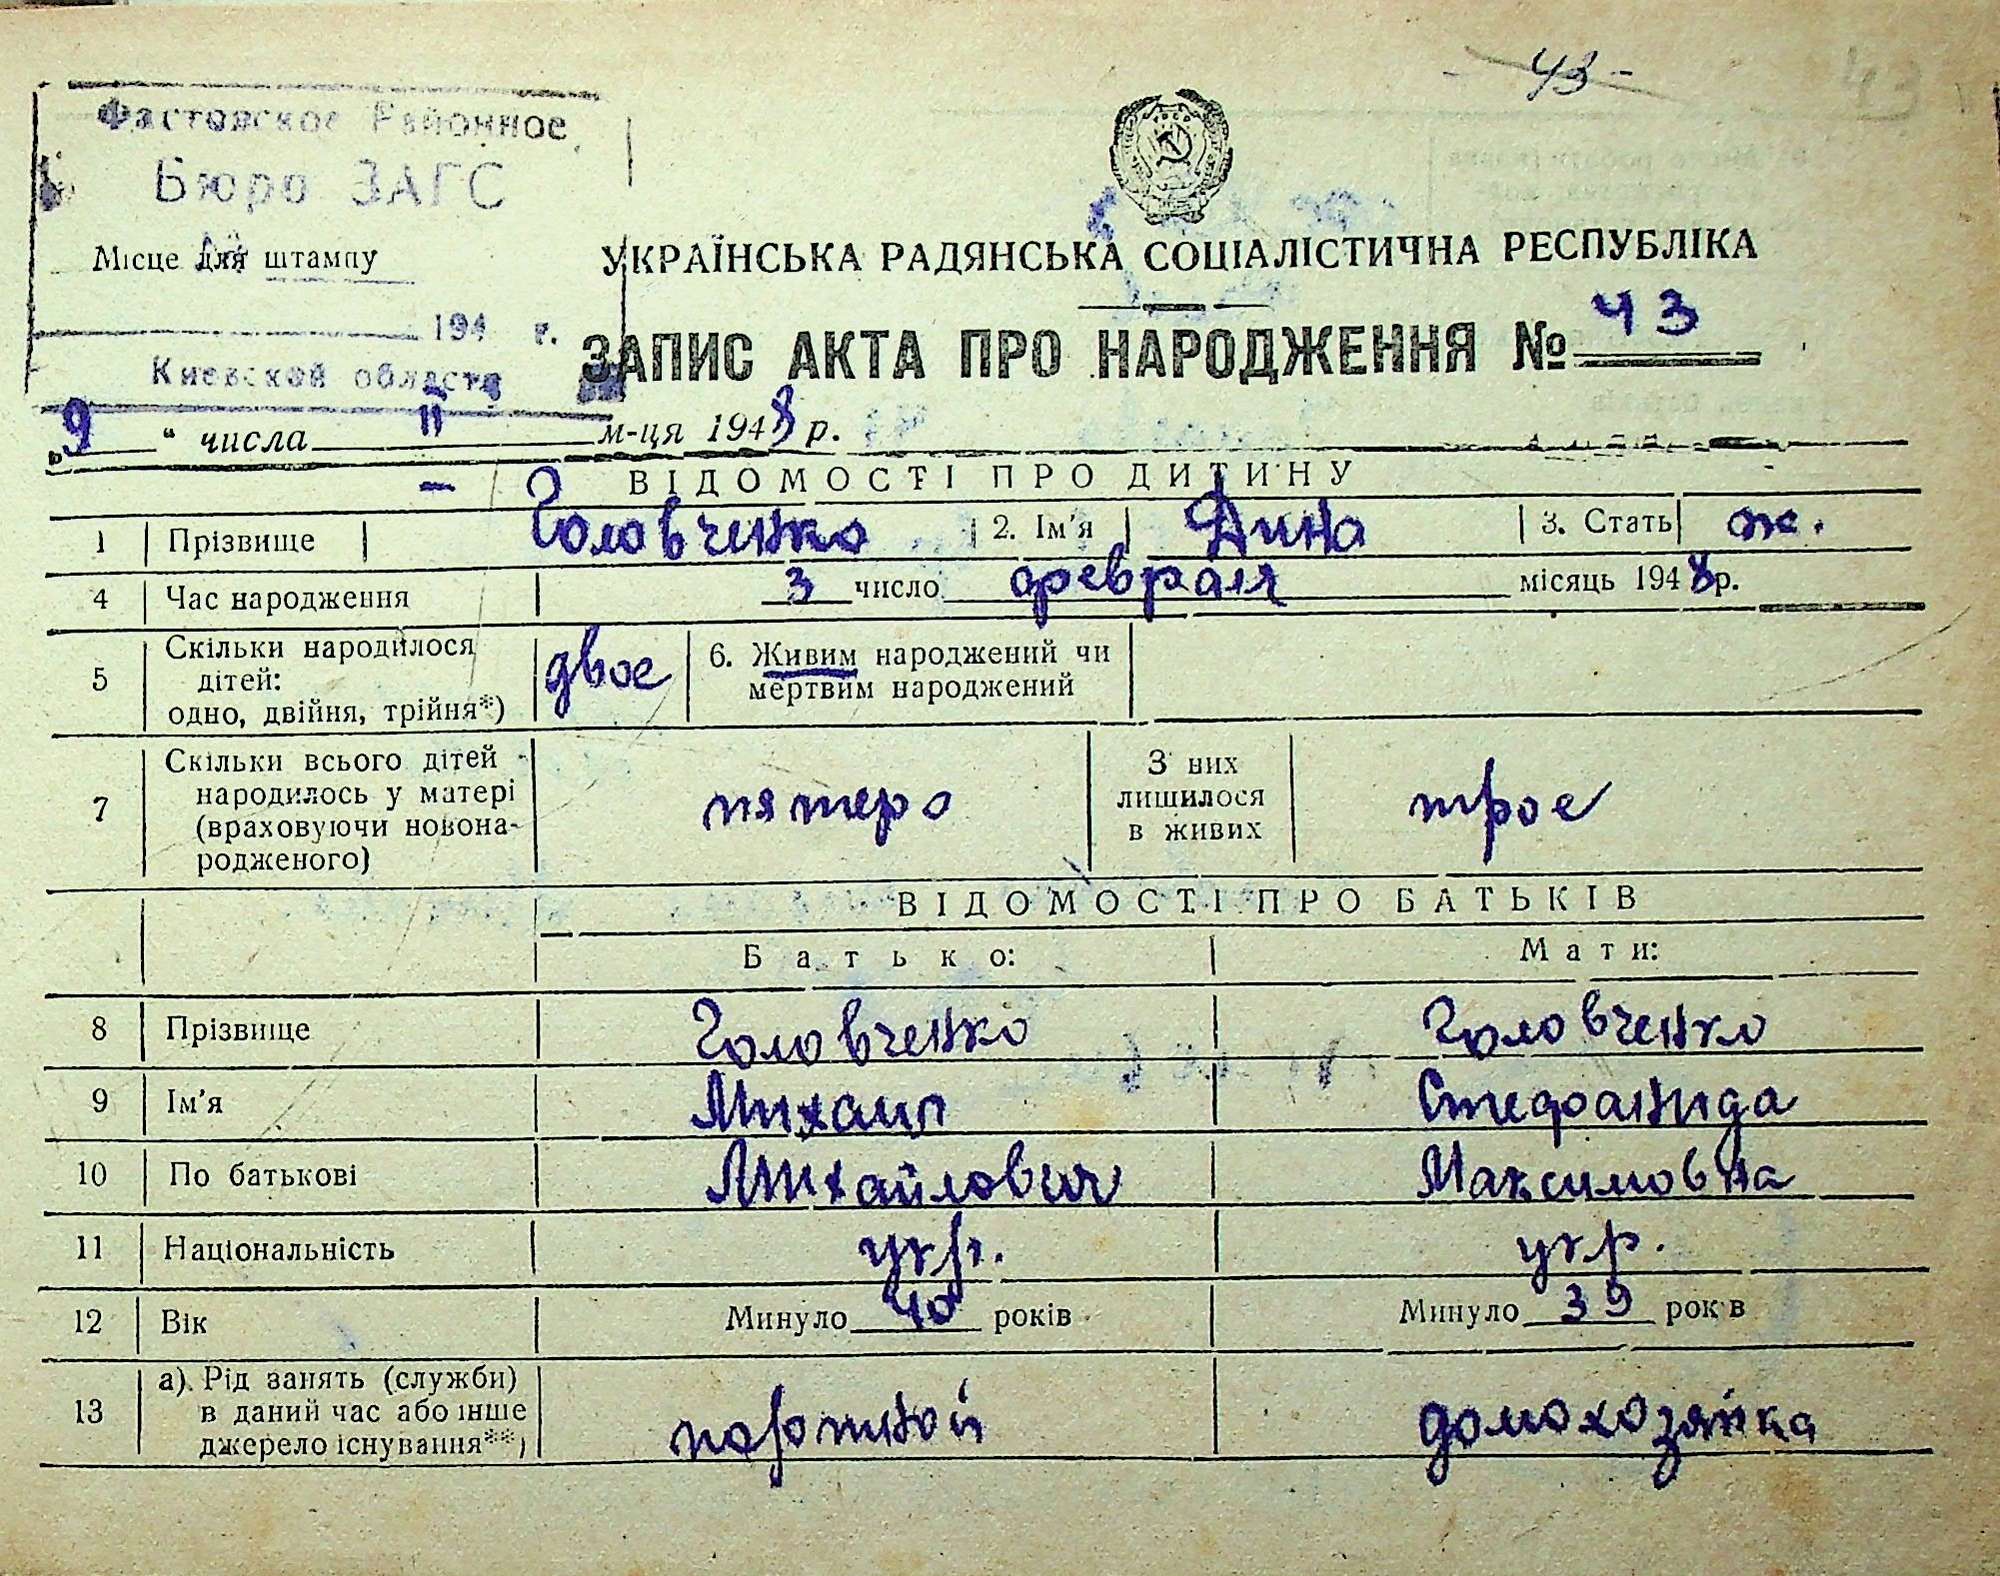 - 43 -
Фастовское Районное
Бюро ЗАГС
Місце для штампу
194 г.
Киевской области
УКРАЇНСЬКА РАДЯНСЬКА СОЦІАЛІСТИЧНА РЕСПУБЛІКА
ЗАПИС АКТА ПРО НАРОДЖЕННЯ № 43
„9“ числа II м-ця 1948 р.
ВІДОМОСТІ ПРО ДИТИНУ
1 Прізвище Головченко 2. Ім'я Дина 3. Стать ж.
4 Час народження 3 число февраля місяць 1948 р.
5 Скільки народилося дітей: одно, двійня, трійня*) двое 6. Живим народжений чи мертвим народжений
7 Скільки всього дітей народилось у матері (враховуючи новонародженого) пятеро З них лишилося в живих трое
ВІДОМОСТІ ПРО БАТЬКІВ
Батько: Мати:
8 Прізвище Головченко Головченко
9 Ім'я Михаил Стефанида
10 По батькові Михайлович Максимовна
11 Національність укр. укр.
12 Вік Минуло 40 років Минуло 39 рок в
13 а) Рід занять (служби) в даний час або інше джерело існування**) портной домохозяйка